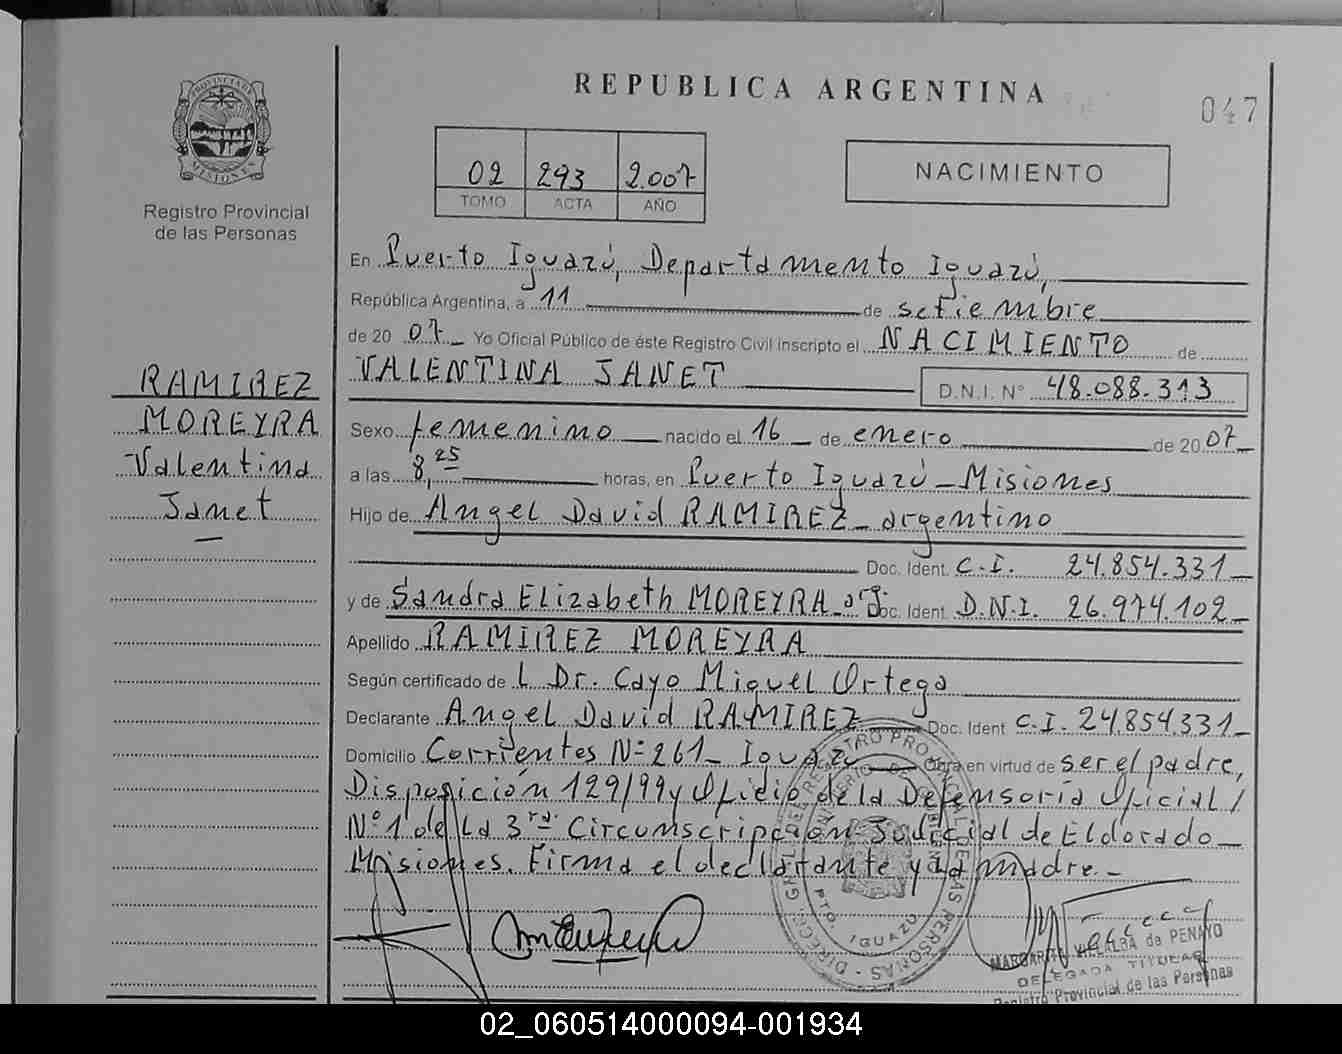 REPUBLICA ARGENTINA
047
PROVINCIA DE
MISIONES
Registro Provincial
de las Personas
02 293 2.007
TOMO ACTA AÑO
NACIMIENTO
En Puerto Iguazú, Departamento Iguazú,
República Argentina, a 11 de setiembre
de 20 07 Yo Oficial Público de éste Registro Civil inscripto el NACIMIENTO de
VALENTINA JANET D.N.I. N° 48.088.313
RAMIREZ
MOREYRA
Valentina
Janet
Sexo femenino nacido el 16 de enero de 20 07
a las 8,25 horas, en Puerto Iguazú - Misiones
Hijo de Angel David RAMIREZ - argentino
Doc. Ident. C.I. 24.854.331
y de Sandra Elizabeth MOREYRA - arg. Doc. Ident. D.N.I. 26.974.102
Apellido RAMIREZ MOREYRA
Según certificado de L Dr. Cayo Miguel Ortega
Declarante Angel David RAMIREZ Doc. Ident C.I. 24.854.331
Domicilio Corrientes N° 261 - Iguazú Obra en virtud de ser el padre,
Disposición 129/99 y Oficio de la Defensoría Oficial /
N° 1 de la 3ra Circunscripción Judicial de Eldorado
Misiones. Firma el declarante y la madre. -
PTO. IGUAZU
MARGARITA VILLALBA de PENAYO
DELEGADA TITULAR
Registro Provincial de las Personas
02_060514000094-001934